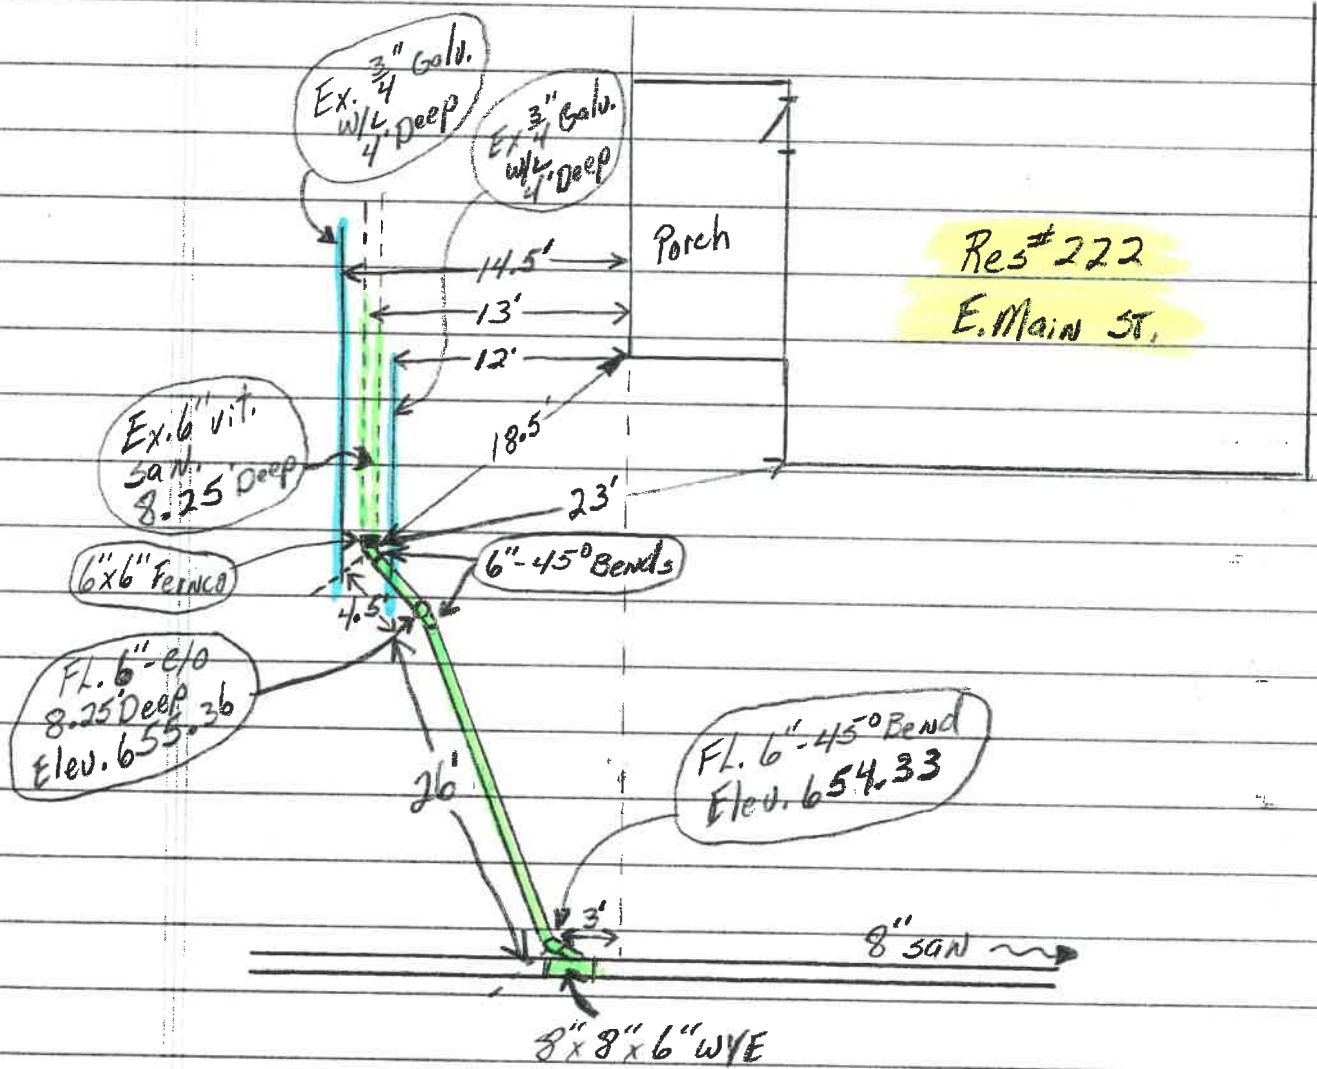 Ex. 3/4" Galv.
W/L
4' Deep
Ex 3/4" Galv.
W/L
4' Deep
Porch
Res# 222
E. Main ST.
14.5'
13'
12'
18.5'
23'
Ex. 6" vit.
san.
8.25' Deep
6"x6" Fernco
6"-45° Bends
4.5'
FL. 6"-c/o
8.25' Deep
Elev. 655.36
26'
FL. 6"-45° Bend
Elev. 654.33
3'
8" san
8"x8"x6" WYE